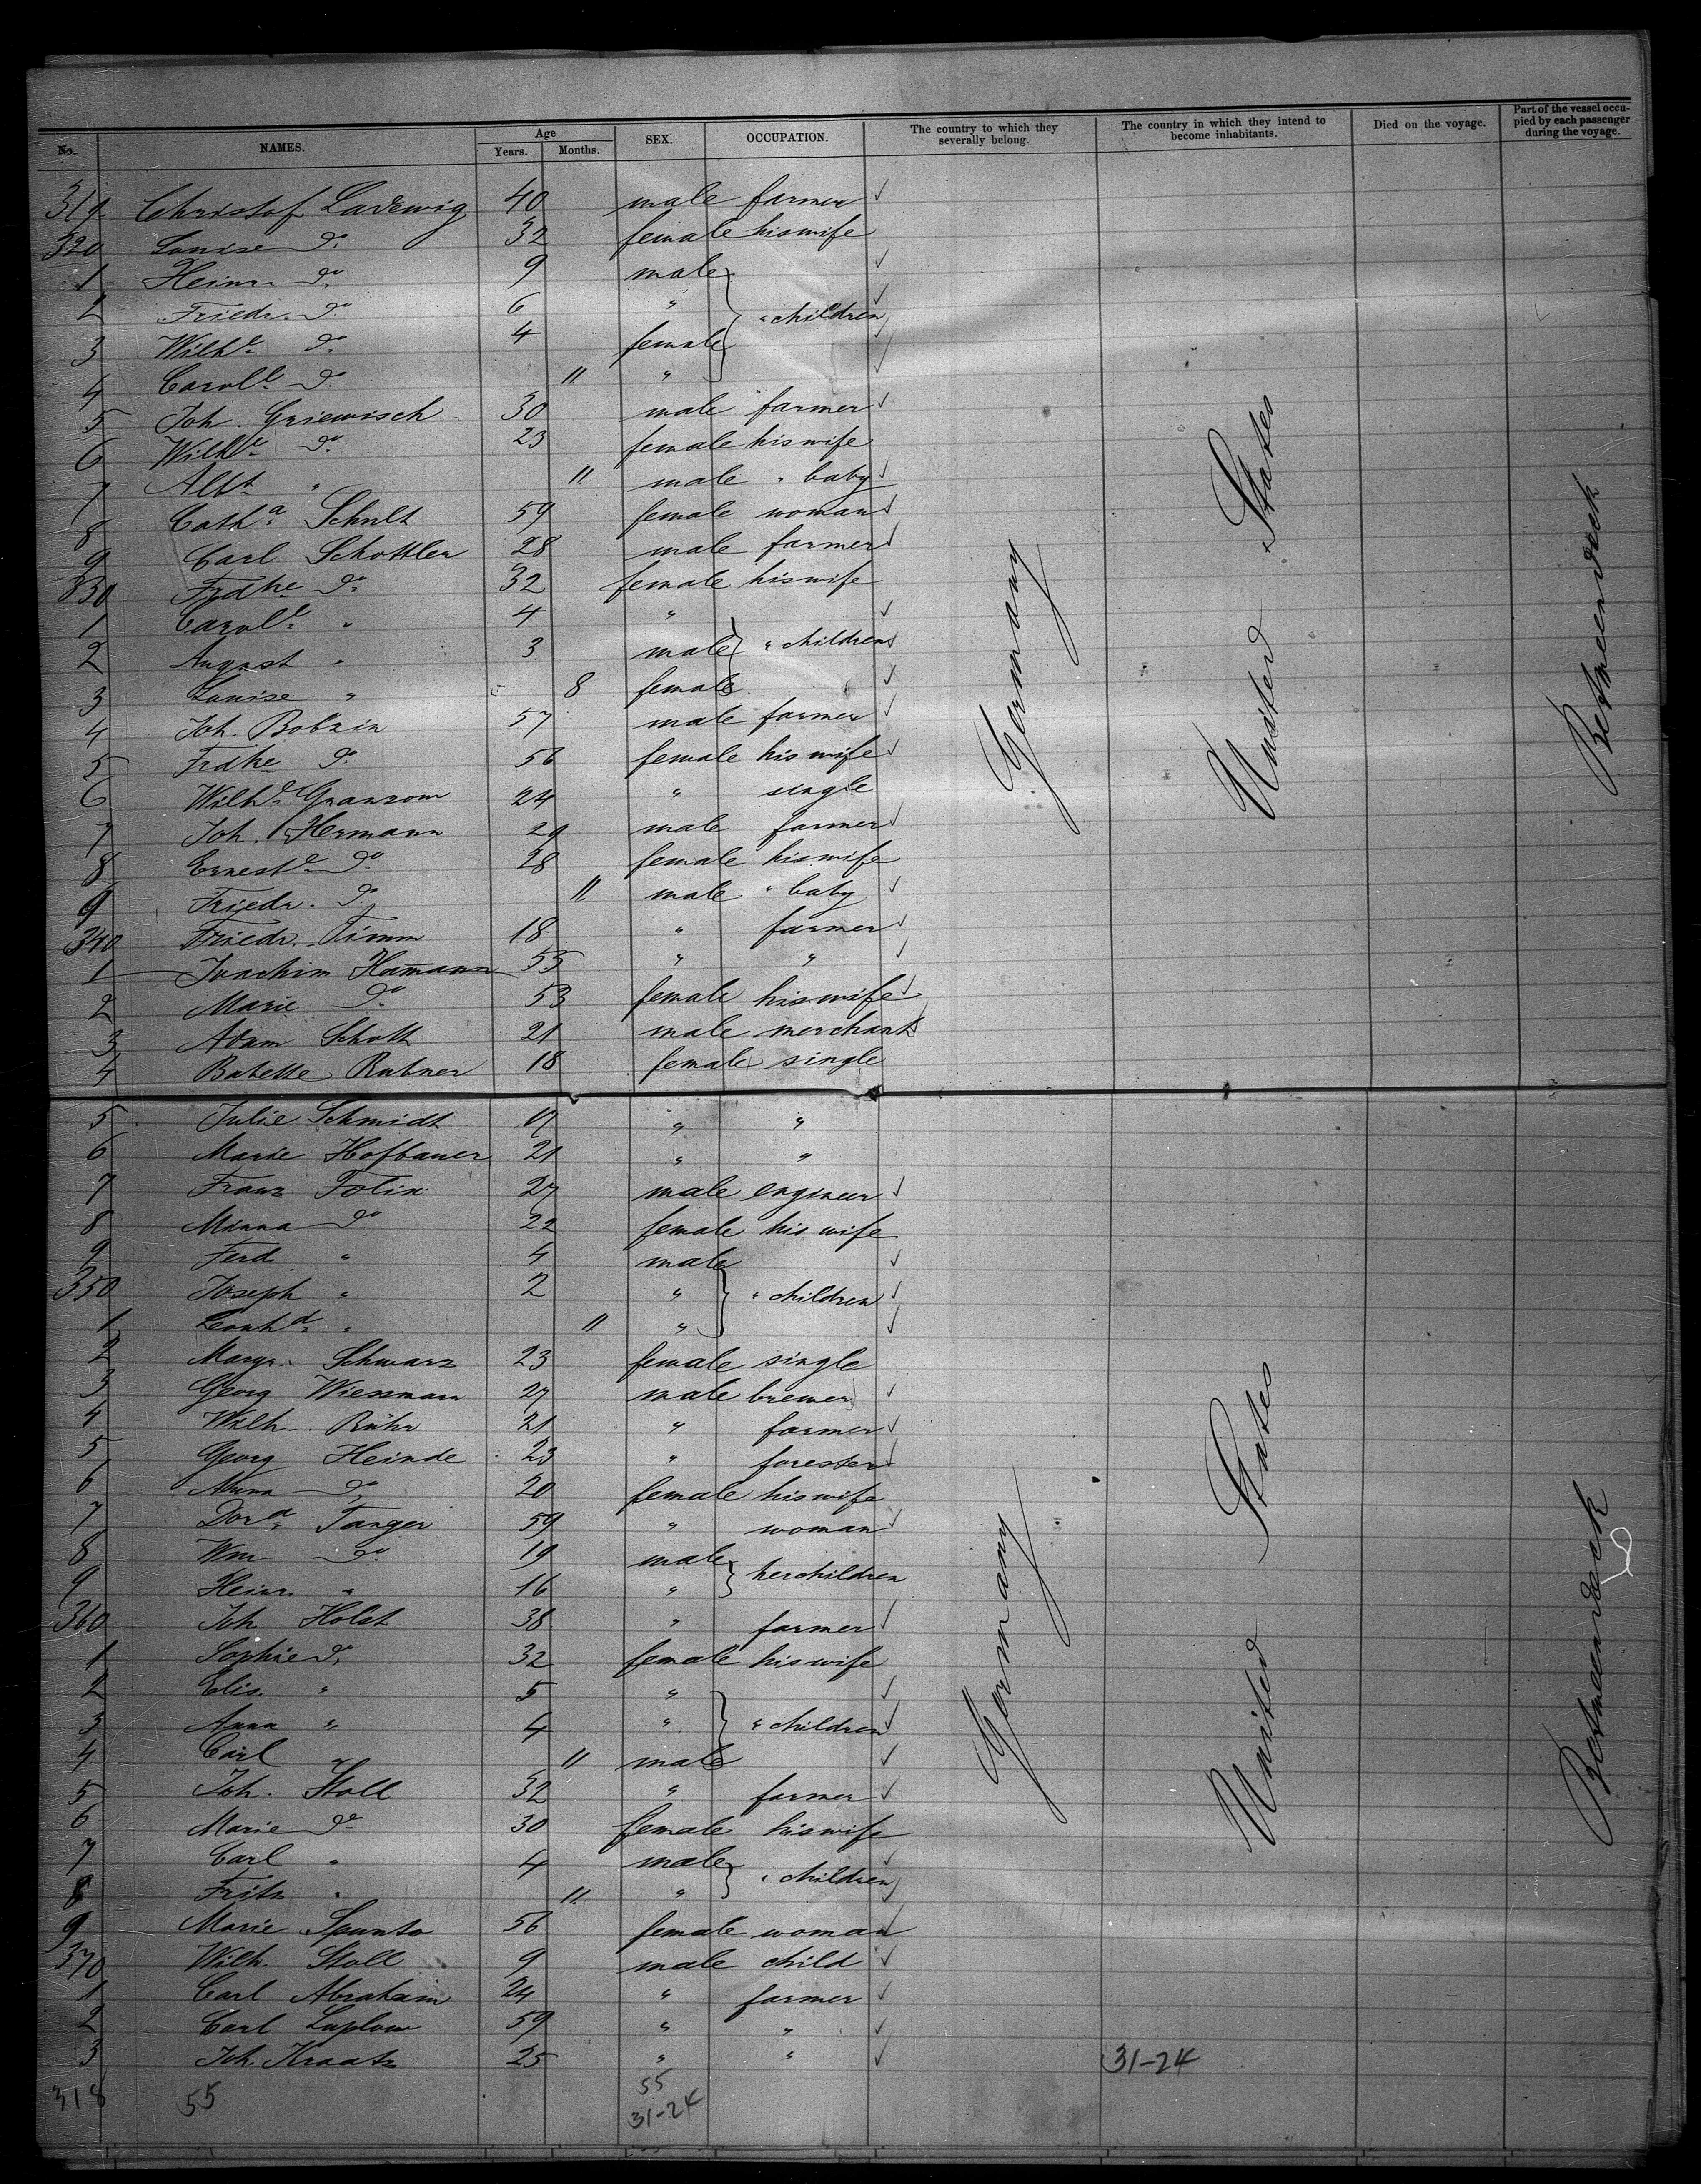 No. NAMES. Age Years. Months. SEX. OCCUPATION. The country to which they severally belong. The country in which they intend to become inhabitants. Died on the voyage. Part of the vessel occupied by each passenger during the voyage.
319 Christof Ladewig 40 male farmer ✓
320 Louise do. 32 female his wife
1 Heinr. do. 9 male ✓
2 Friedr. do. 6 " " children ✓
3 Wilhe. do. 4 female ✓
4 Carole. do. 11 " ✓
5 Joh. Griewisch 30 male farmer ✓
6 Wilhe. do. 23 female his wife
7 Albt. " 11 male " baby ✓
8 Catha. Schult 59 female woman ✓
9 Carl Schottler 28 male farmer ✓
330 Frdke do. 32 female his wife
1 Carole. " 4 " ✓
2 August " 3 male " children ✓
3 Louise " 8 female ✓
4 Joh. Bobzin 57 male farmer ✓
5 Frdke do. 56 female his wife ✓
6 Wilhe. Granzow 24 " single
7 Joh. Hermann 29 male farmer ✓
8 Erneste. do. 28 female his wife
9 Friedr. do. 11 male " baby ✓
340 Friedr. Timm 18 " farmer ✓
1 Joachim Hamann 55 " " ✓
2 Marie do. 53 female his wife ✓
3 Adam Schott 21 male merchant ✓
4 Babette Rubner 18 female single
Germany United States Betweendeck
5 Julie Schmidt 17 " "
6 Marie Hofbauer 21 " "
7 Franz Folix 27 male engineer ✓
8 Minna do 22 female his wife
9 Ferd. " 4 male ✓
350 Joseph " 2 " " children ✓
1 Leonhd. " 11 " ✓
2 Margr. Schwarz 23 female single
3 Georg Wiessman 27 male brewer ✓
4 Wilh. Rühr 21 " farmer ✓
5 Georg Heinde 23 " forester ✓
6 Anna do. 20 female his wife
7 Dora. Tanger 59 " woman ✓
8 Wm do. 19 male her children
9 Heinr. " 16 "
360 Joh. Holst 38 " farmer ✓
1 Sophie do. 32 female his wife
2 Elis. " 5 " ✓
3 Anna " 4 " " children ✓
4 Carl 11 male ✓
5 Joh. Stoll 32 " farmer ✓
6 Marie do 30 female his wife
7 Carl " 4 male ✓
8 Fritz " 11 " " children
9 Marie Spunto 56 female woman ✓
370 Wilh. Stoll 9 male child ✓
1 Carl Abraham 24 " farmer ✓
2 Carl Luplow 59 " " ✓
3 Joh. Kraatz 25 " " ✓ 31-24
Germany United States Betweendeck
318 55 55
31-24